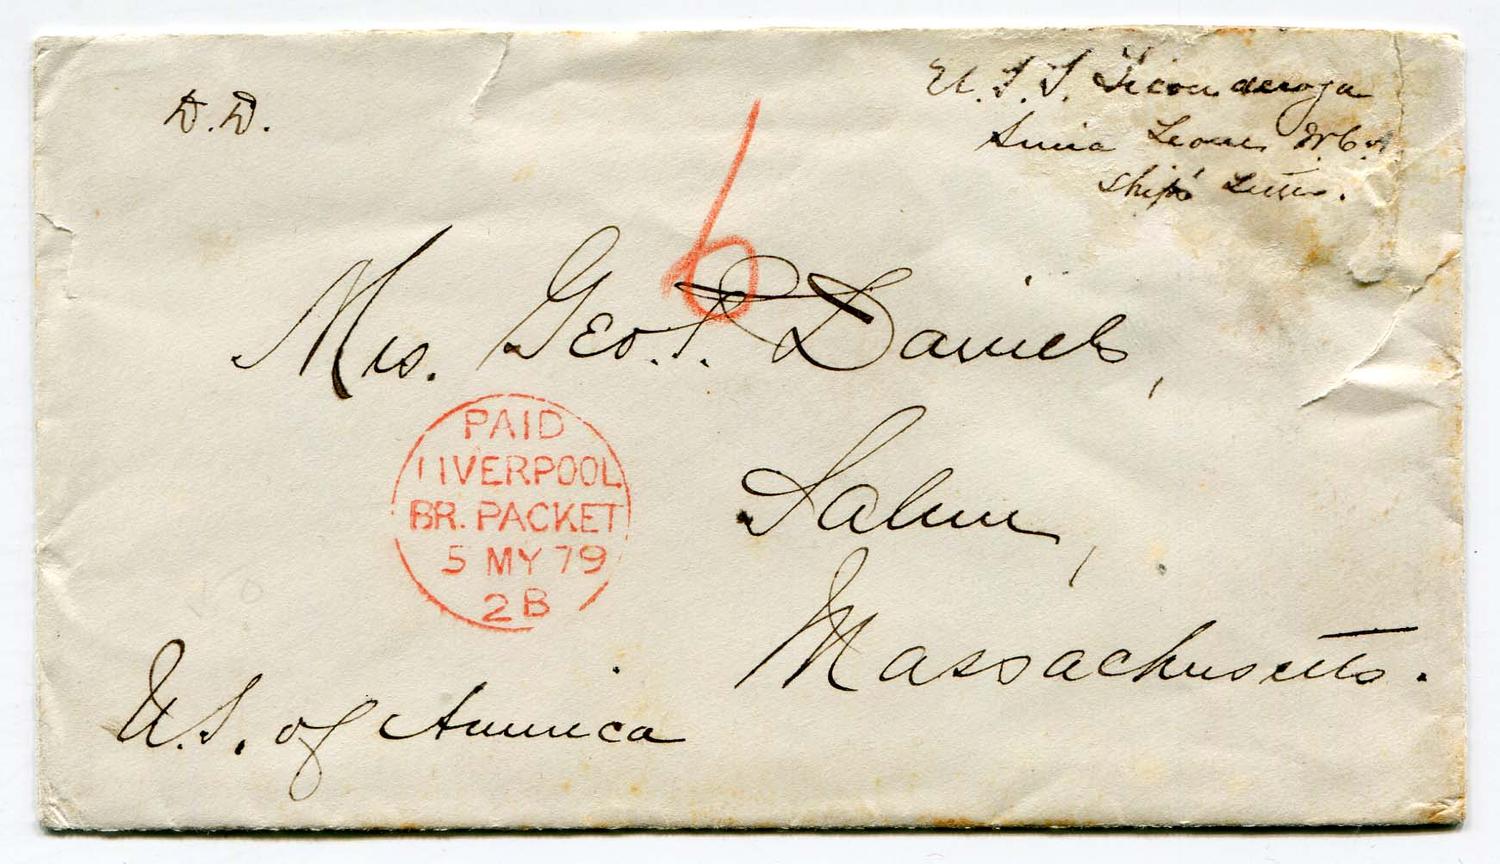 D.D.
U.S.S. Ticonderoga
Sierra Leone W.C.A.
Ship's Letter.
6
Mrs. Geo. P. Daniels,
Salem,
Massachusetts.
U.S. of America
PAID
LIVERPOOL
BR. PACKET
5 MY 79
2B